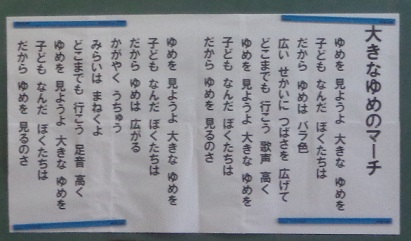 大きなゆめのマーチ
ゆめを 見ようよ 大きな ゆめを
子ども なんだ ぼくたちは
だから ゆめは バラ色
広い せかいに つばさを 広げて
どこまでも 行こう 歌声 高く
ゆめを 見ようよ 大きな ゆめを
子ども なんだ ぼくたちは
だから ゆめを 見るのさ
ゆめを 見ようよ 大きな ゆめを
子ども なんだ ぼくたちは
だから ゆめは 広がる
かがやく うちゅう
みらいは まねくよ
どこまでも 行こう 足音 高く
ゆめを 見ようよ 大きな ゆめを
子ども なんだ ぼくたちは
だから ゆめを 見るのさ